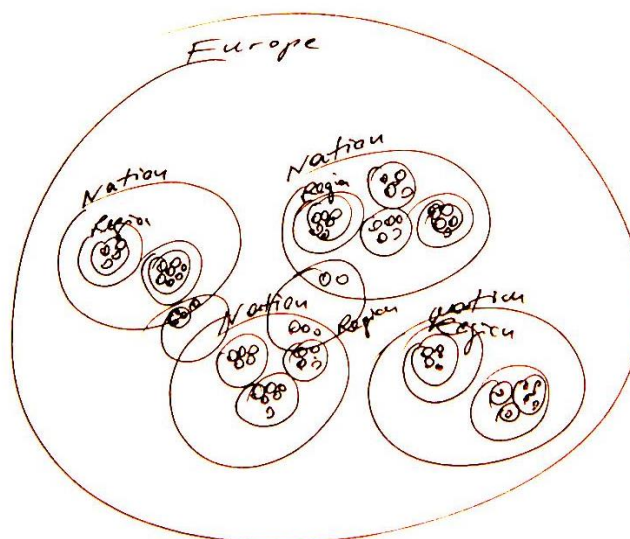 Europe
Nation
Region
Nation
Region
Nation
Region
Nation
Region